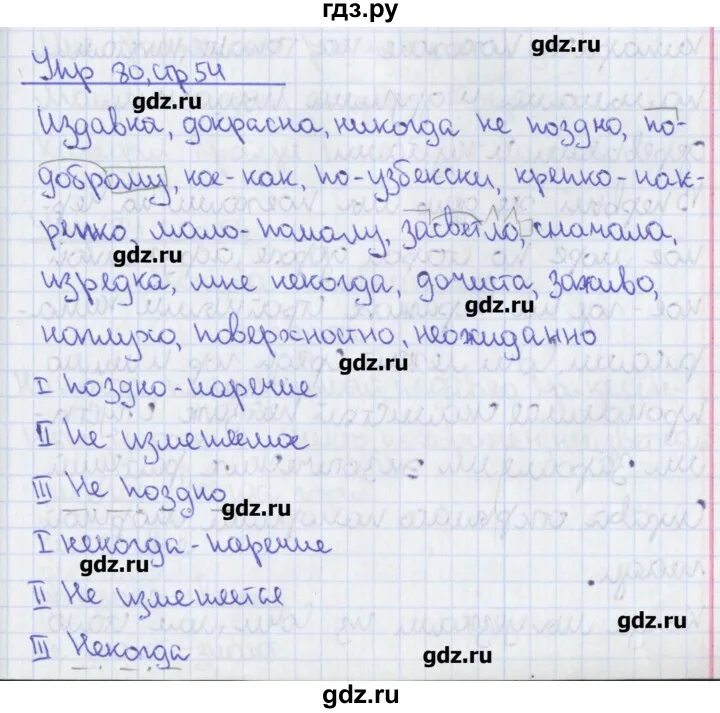 гдз.ру
gdz.ru
Упр 80, стр 54
gdz.ru
Издавна, докрасна, никогда не поздно, по-
доброму, кое-как, по-узбекски, крепко-нак-
репко, мало-помалу, засветло, сначала,
gdz.ru
изредка, мне некогда, дочиста, заживо,
gdz.ru
наглухо, поверхностно, неожиданно
gdz.ru
I поздно - наречие
II Не изменяемое
III Не поздно
gdz.ru
I некогда - наречие
gdz.ru
II Не изменяется
gdz.ru
III Некогда
gdz.ru
gdz.ru